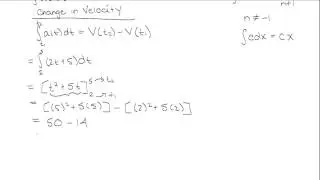 Change in Velocity
∫ a(t)dt = V(t₂) - V(t₁)
= ∫ (2t+5)dt
= [t²+5t] 5→t₂ 2→t₁
= [(5)²+5(5)] - [(2)²+5(2)]
= 50 - 14
n+1
n ≠ -1
∫cdx = cx